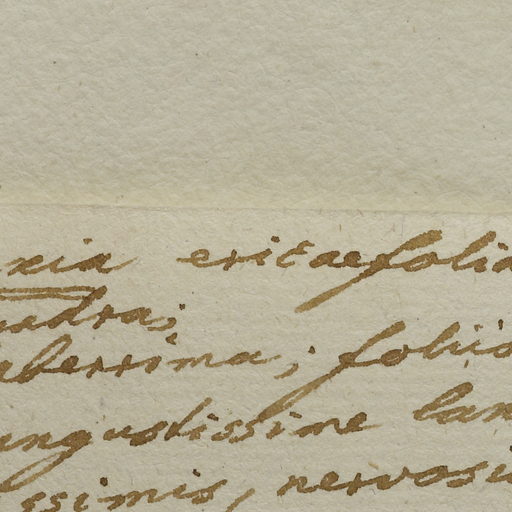 xia ericaefolia
uadra;
aberrima; foliis
angustissime lan
issimis, nervosi